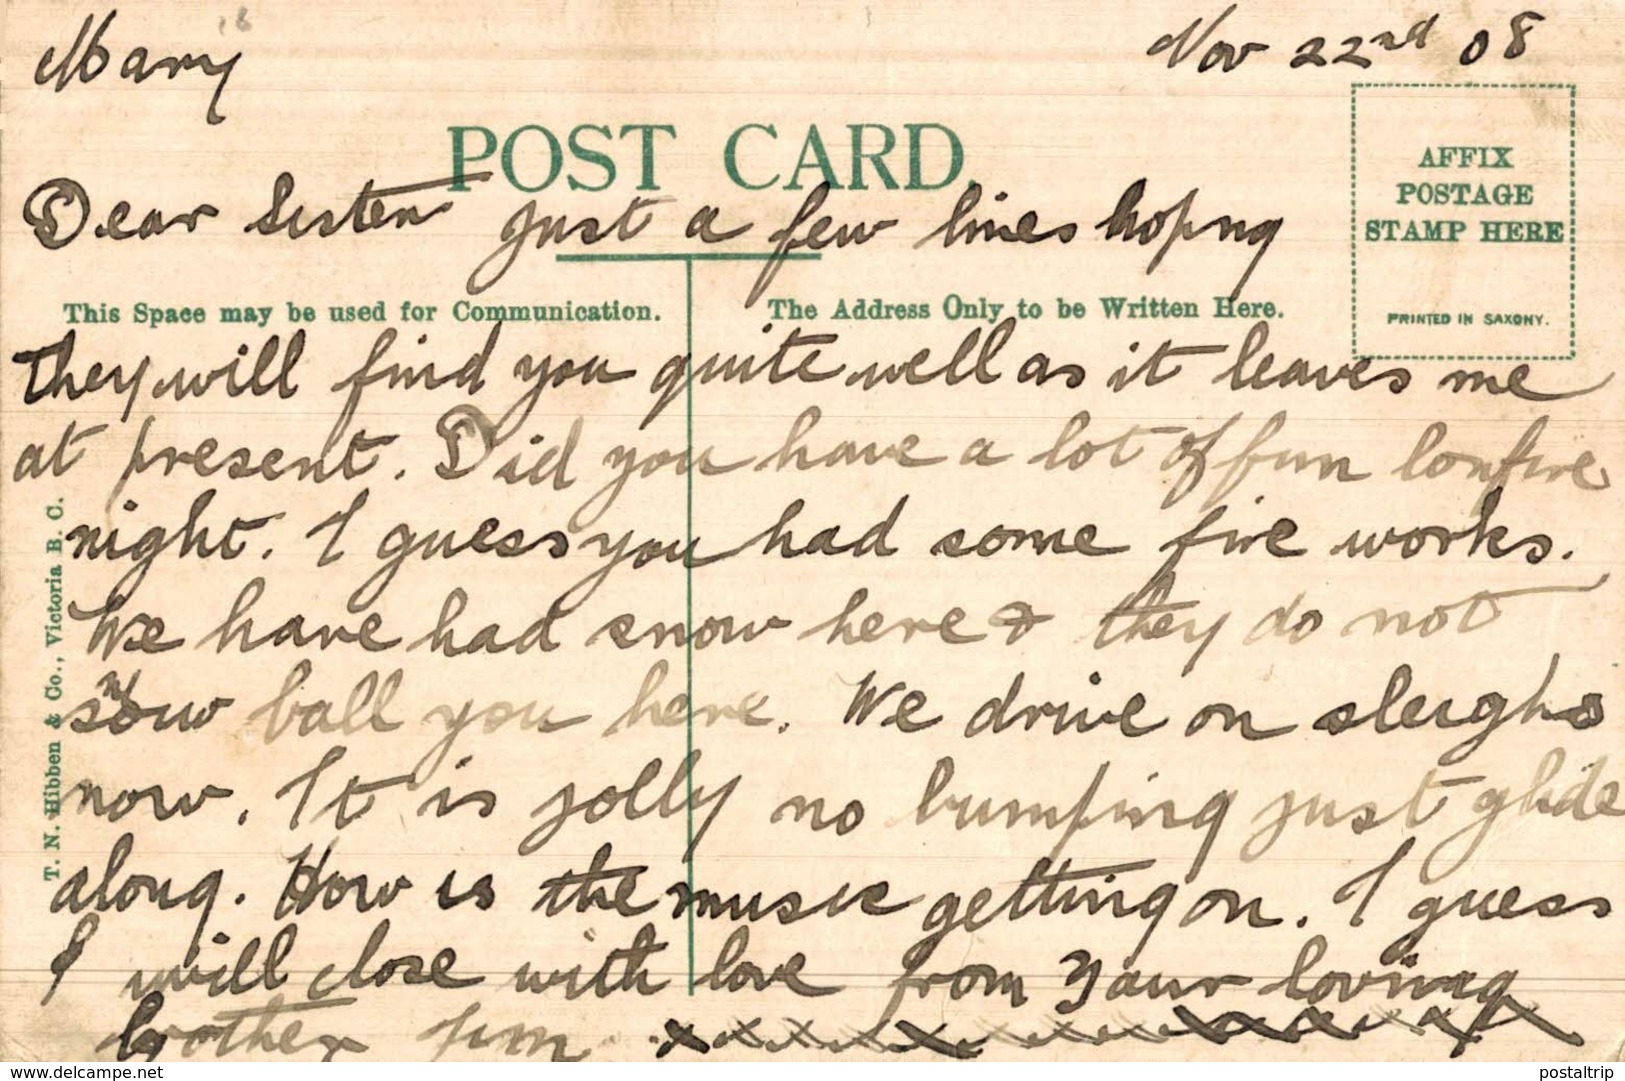 Mary
Nov 22nd 08
POST CARD.
AFFIX
POSTAGE
STAMP HERE
PRINTED IN SAXONY.
Dear Sister just a few lines hoping
This Space may be used for Communication.
The Address Only to be Written Here.
they will find you quite well as it leaves me
at present. Did you have a lot of fun bonfire
night. I guess you had some fire works.
We have had snow here & they do not
snow ball you here. We drive on sleighs
now. It is jolly no bumping just glide
along. How is the music getting on. I guess
I will close with love from Your loving
brother Jim xxxxxxxxxxxxx
T. N. Hibben & Co., Victoria B. C.
www.delcampe.net
postaltrip